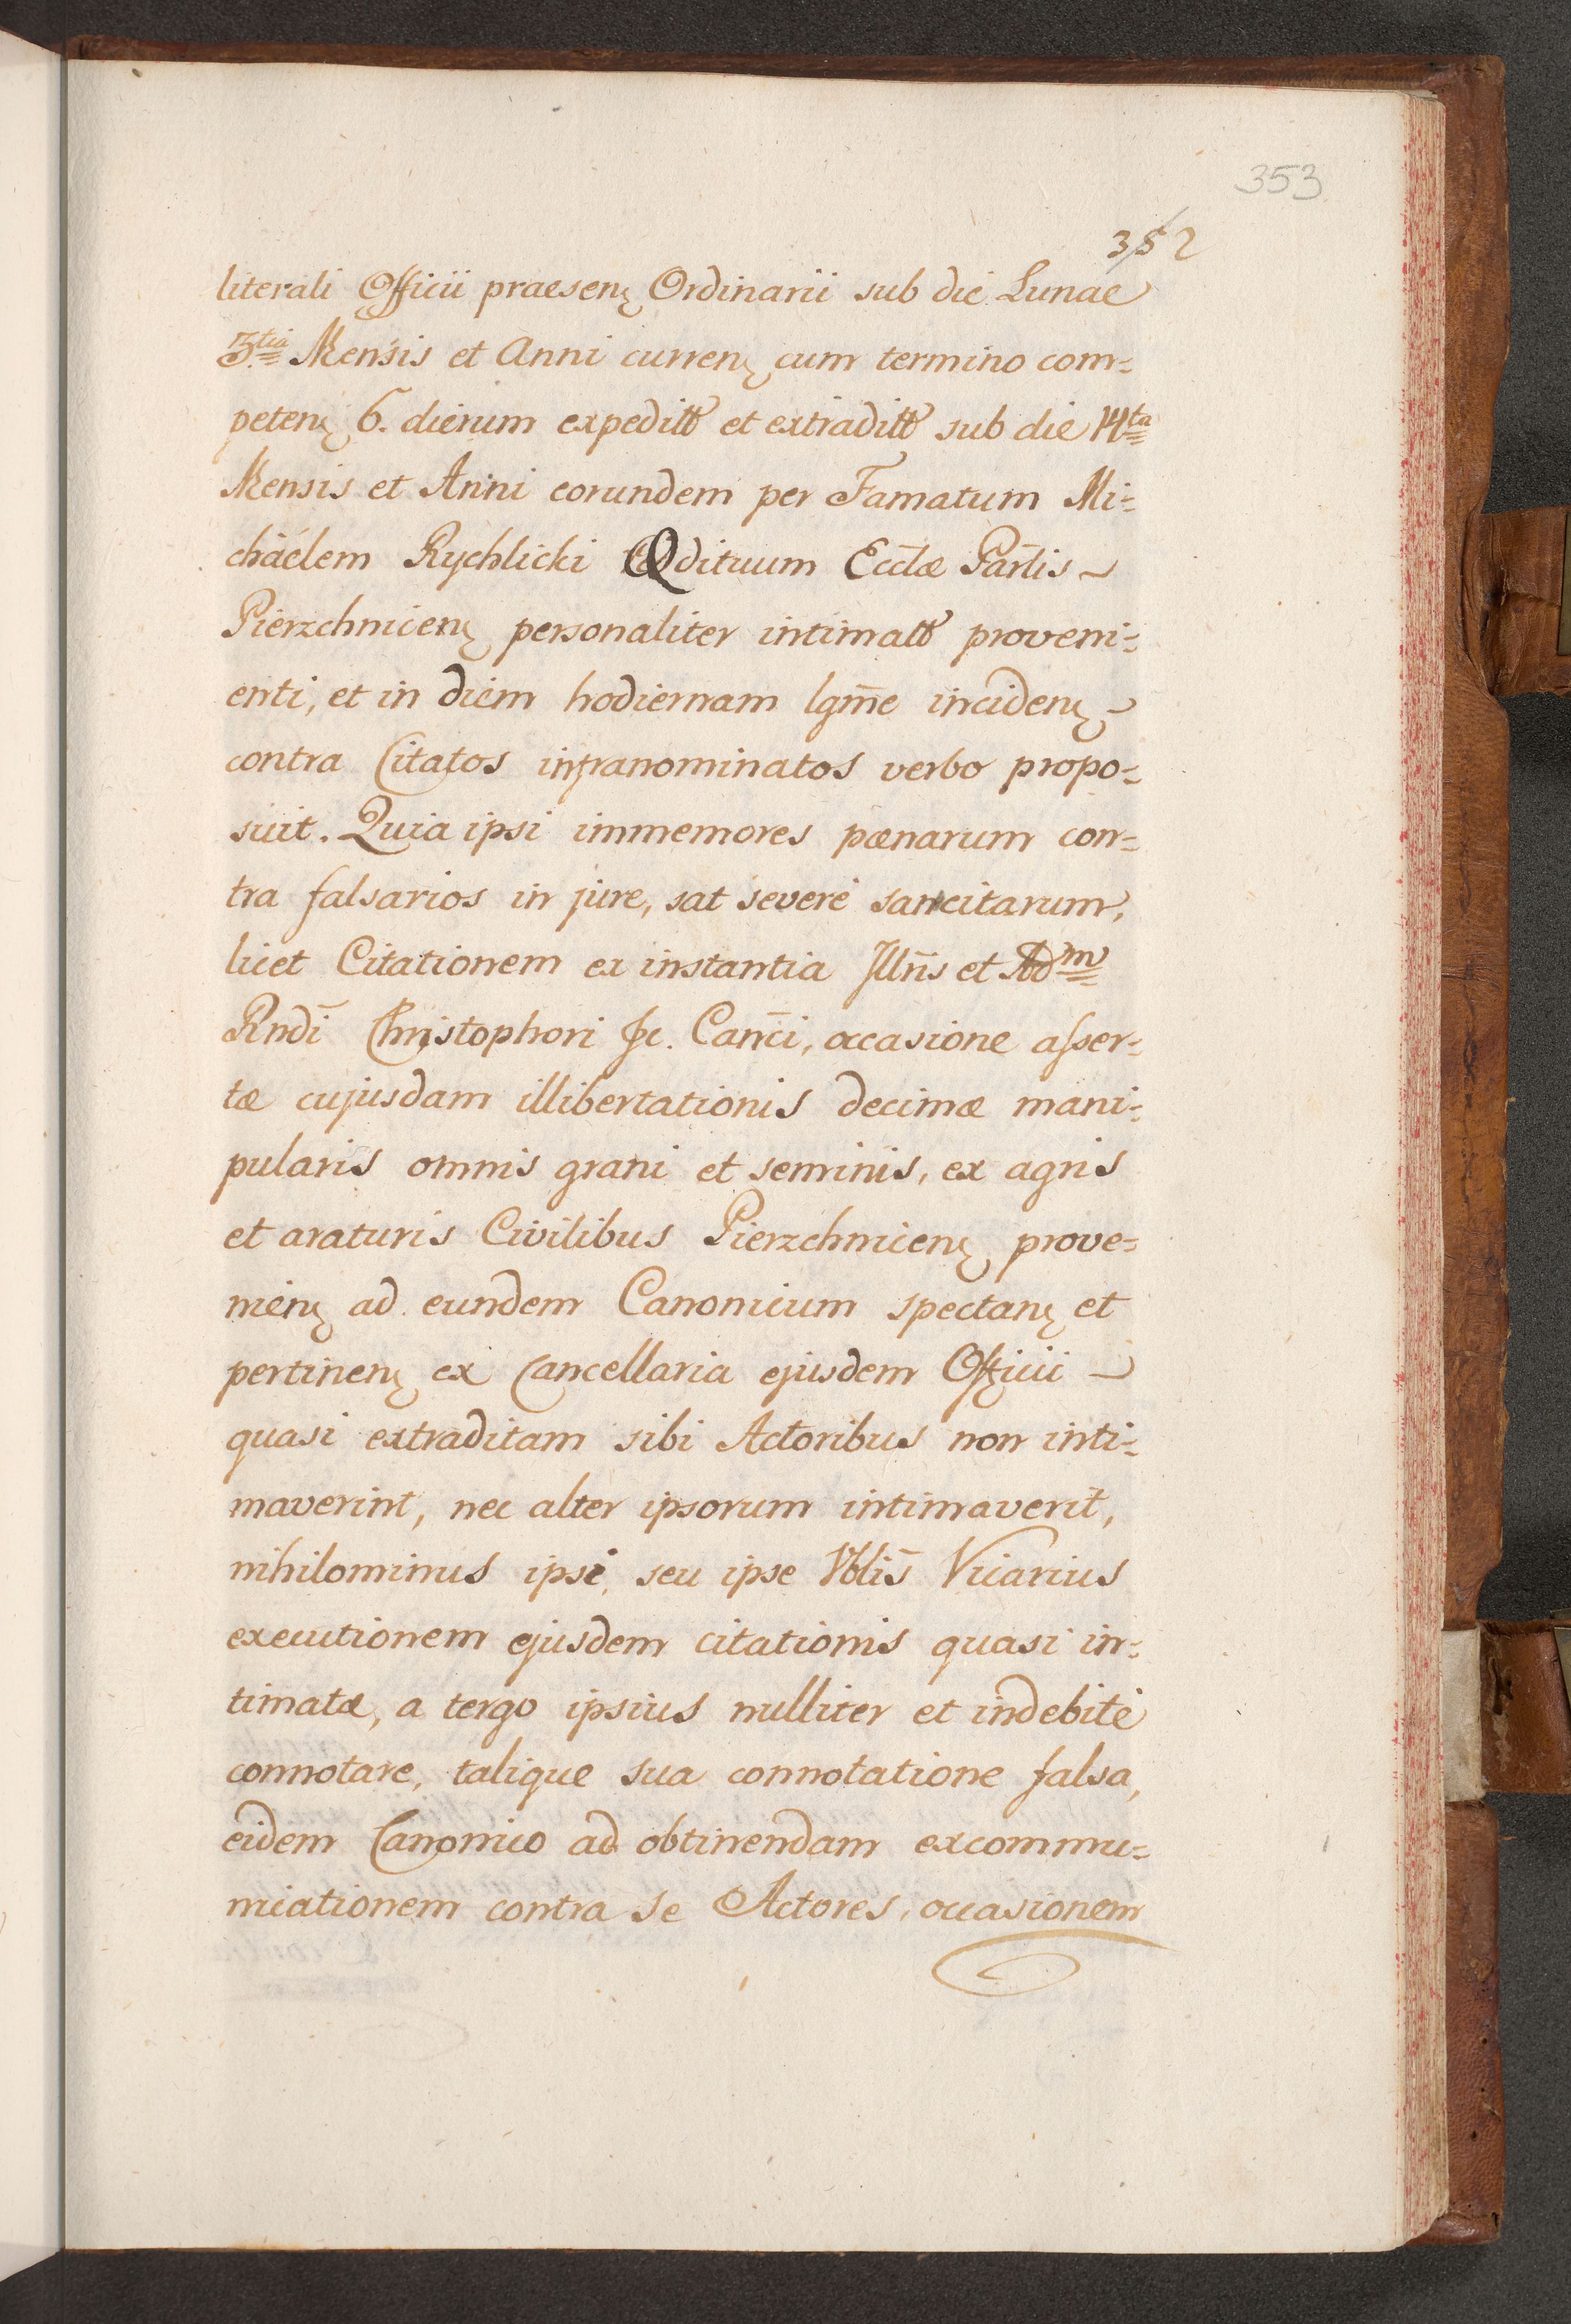 353
352
literali Officii praesenȩ Ordinarii sub die Lunae
3.tia Mensis et Anni currenȩ cum termino com=
petenȩ 6. dierum expeditt et extraditt sub die 14ta
Mensis et Anni eorundem per Famatum Mi=
chäelem Rychlicki Ædituum Eccl̄æ Parl̄is ~
Pierzchnicenȩ personaliter intimatt proveni=
enti, et in diem hodiernam lgm̄e incidenȩ ~
contra Citatos infranominatos verbo propo=
suit. Quia ipsi immemores pœnarum con=
tra falsarios in jure, sat severè sancitarum,
licet Citationem ex instantia Illn̄is et Adm
Rndī Christophori &c. Canc̄i, occasione asser=
tæ cujusdam illibertationis decimæ mani=
pularis omnis grani et seminis, ex agris
et araturis Civilibus Pierzchnicenȩ prove=
nienȩ ad eundem Canonicum spectanȩ et
pertinenȩ ex Cancellaria ejusdem Officii ~
quasi extraditam sibi Actoribus non inti=
maverint, nec alter ipsorum intimaverit,
nihilominus ipsi, seu ipse Vblīs Vicarius
executionem ejusdem citationis quasi in=
timatæ, a tergo ipsius nulliter et indebitè
connotare, talique sua connotatione falsa,
eidem Canonico ad obtinendam excommu=
nicationem contra se Actores, occasionem